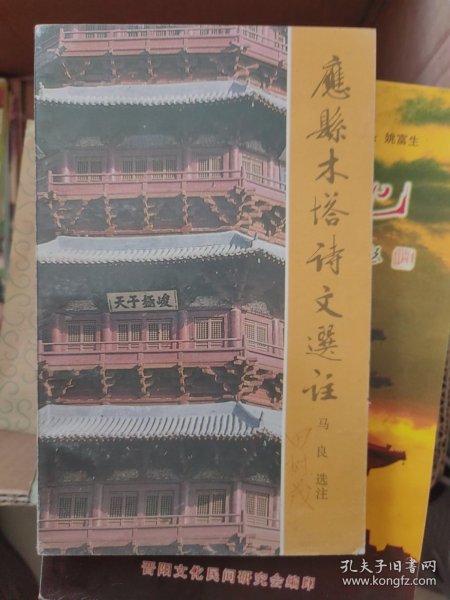 應縣木塔诗文選註
马良 选注
天于極峻
姚富生
晋阳文化民间研究会编印
孔夫子旧书网
www.kongfz.com